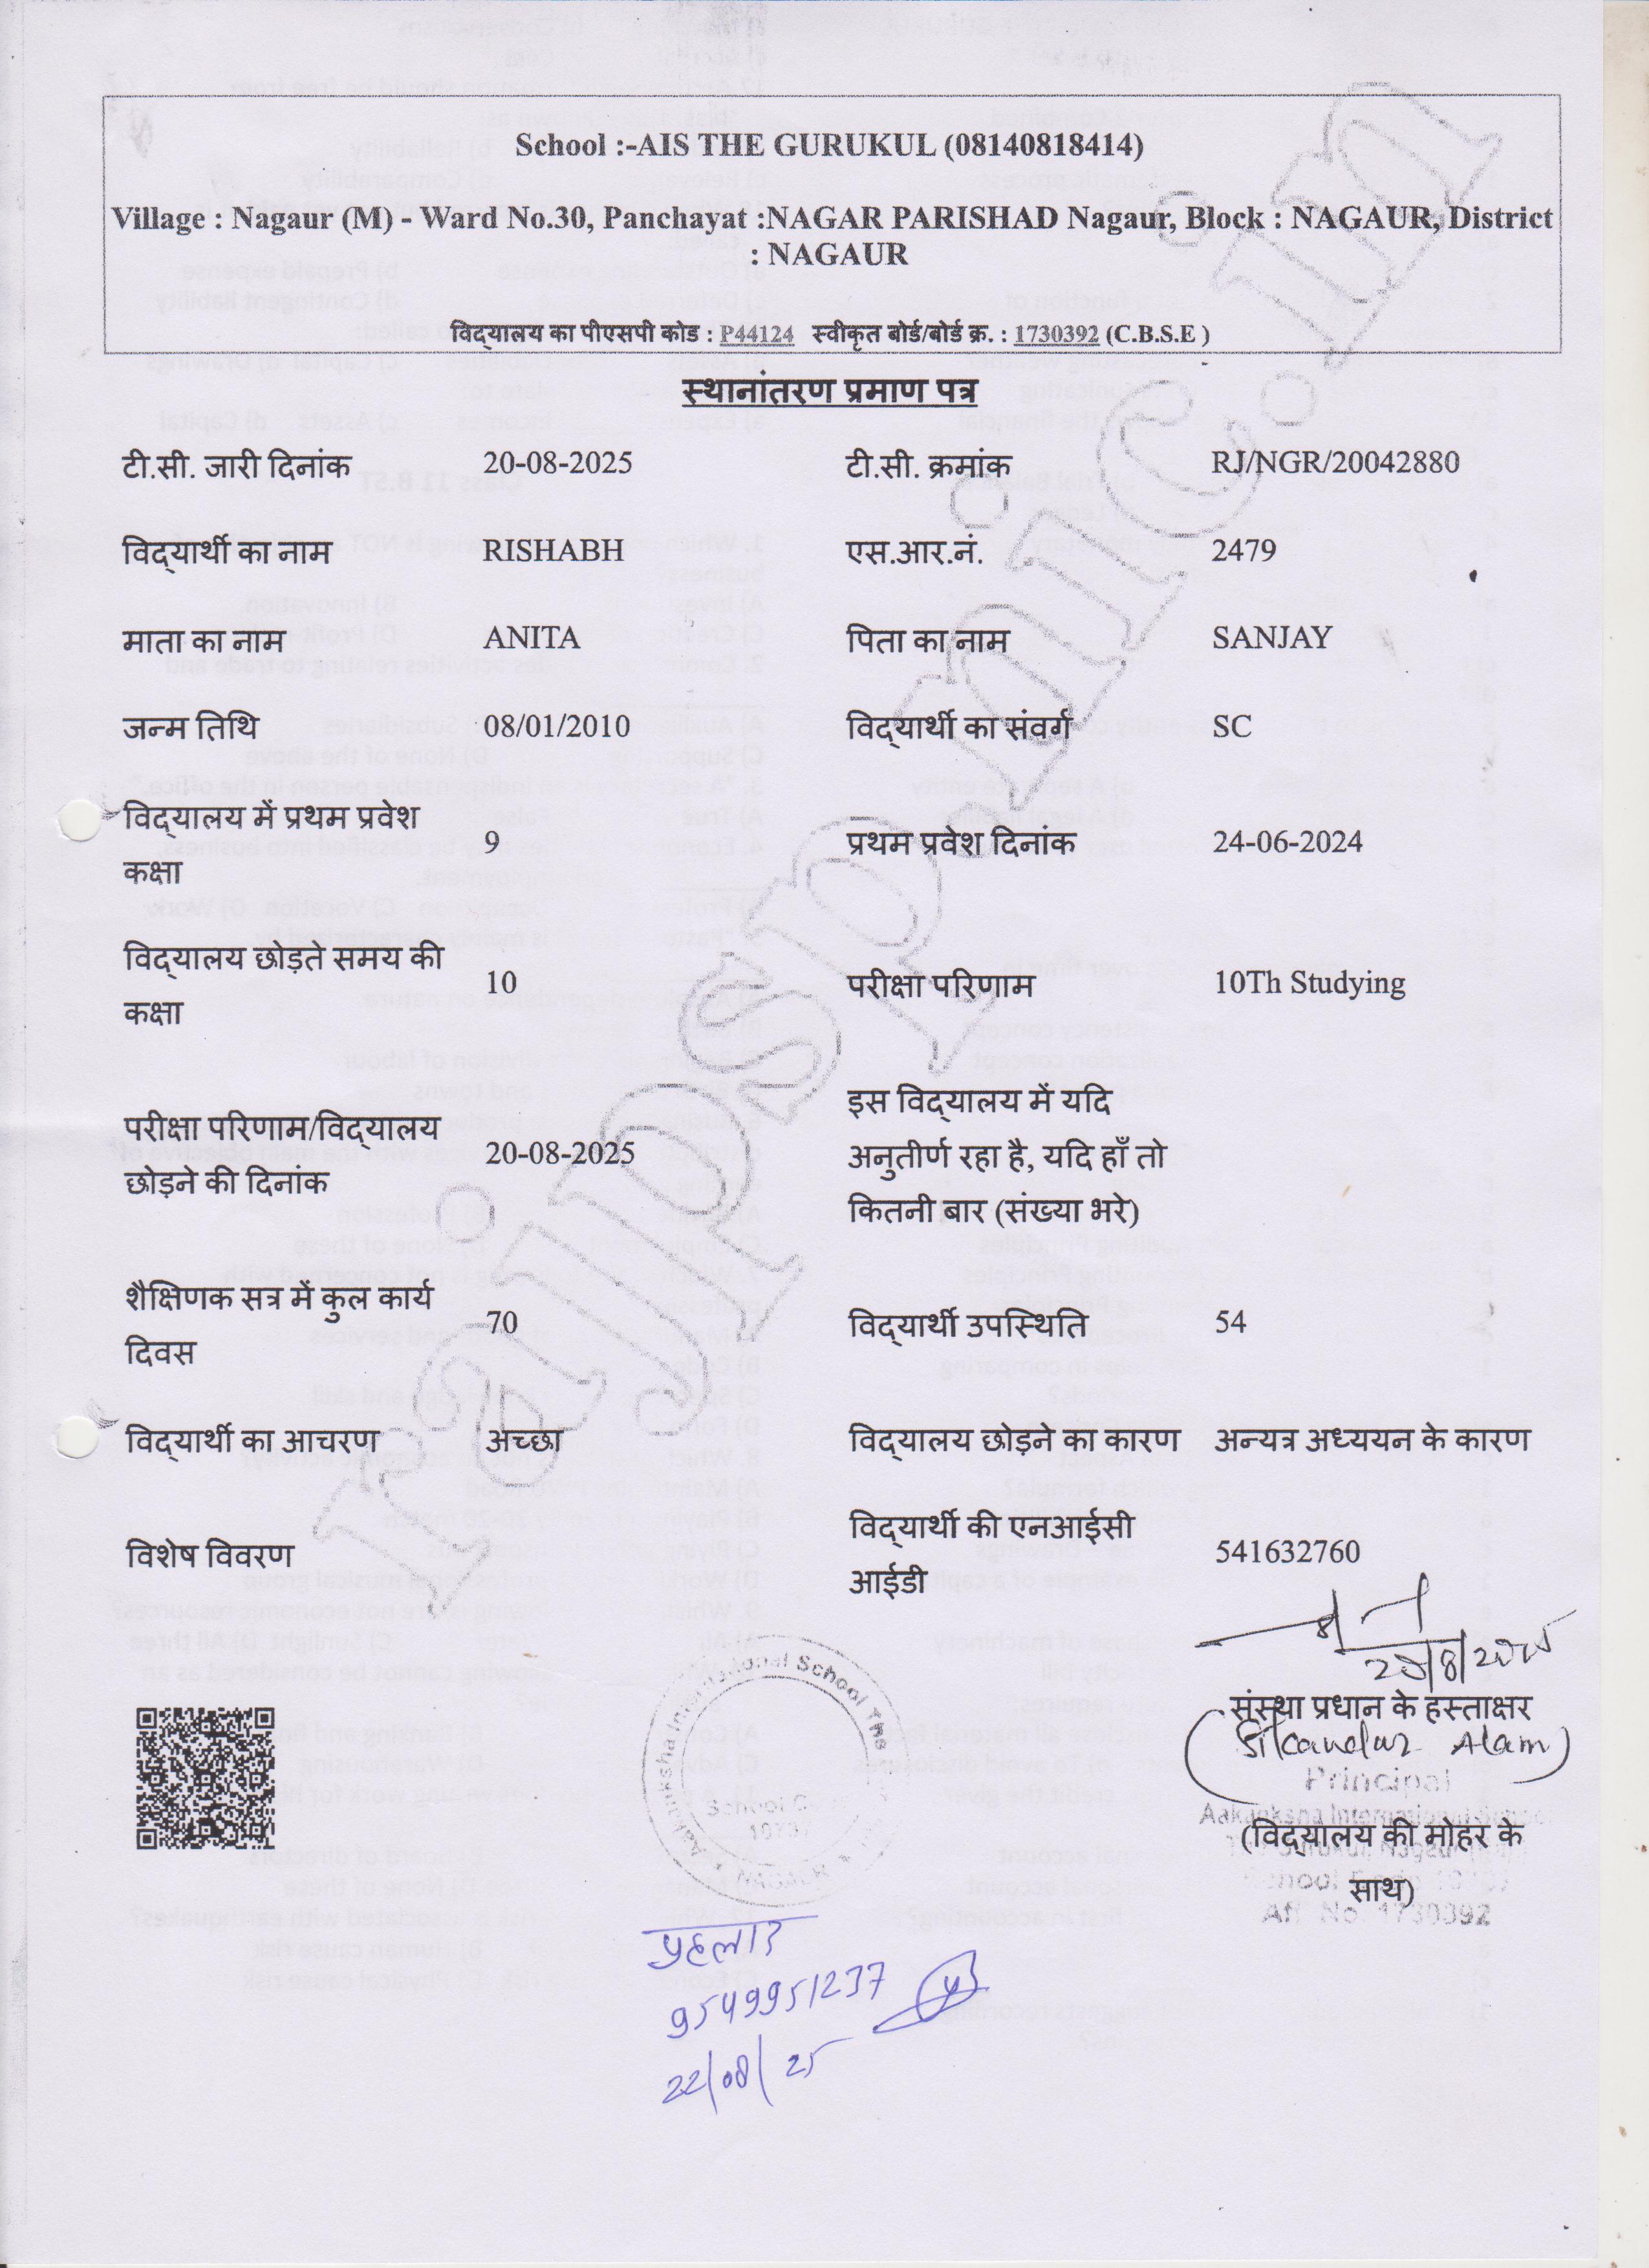 School :-AIS THE GURUKUL (08140818414)
Village : Nagaur (M) - Ward No.30, Panchayat :NAGAR PARISHAD Nagaur, Block : NAGAUR, District
: NAGAUR
विद्यालय का पीएसपी कोड : P44124 स्वीकृत बोर्ड/बोर्ड क्र. : 1730392 (C.B.S.E )
स्थानांतरण प्रमाण पत्र
टी.सी. जारी दिनांक 20-08-2025 टी.सी. क्रमांक RJ/NGR/20042880
विद्यार्थी का नाम RISHABH एस.आर.नं. 2479
माता का नाम ANITA पिता का नाम SANJAY
जन्म तिथि 08/01/2010 विद्यार्थी का संवर्ग SC
विद्यालय में प्रथम प्रवेश
कक्षा
9
प्रथम प्रवेश दिनांक 24-06-2024
विद्यालय छोड़ते समय की
कक्षा
10
परीक्षा परिणाम 10Th Studying
परीक्षा परिणाम/विद्यालय
छोड़ने की दिनांक
20-08-2025
इस विद्यालय में यदि
अनुतीर्ण रहा है, यदि हाँ तो
कितनी बार (संख्या भरे)
शैक्षिणक सत्र में कुल कार्य
दिवस
70
विद्यार्थी उपस्थिति 54
विद्यार्थी का आचरण अच्छा विद्यालय छोड़ने का कारण अन्यत्र अध्ययन के कारण
विशेष विवरण
विद्यार्थी की एनआईसी
आईडी
541632760
rajpsp.nic.in
20/8/2025
संस्था प्रधान के हस्ताक्षर
(Sikandar Alam)
Principal
Aakanksha International School
The Gurukul, Nagaur
(विद्यालय की मोहर के
साथ)
School
Aff. No. 1730392
Aakanksha International School The
School C
NAGAUR
प्रहलाद
9549951237
22/08/25